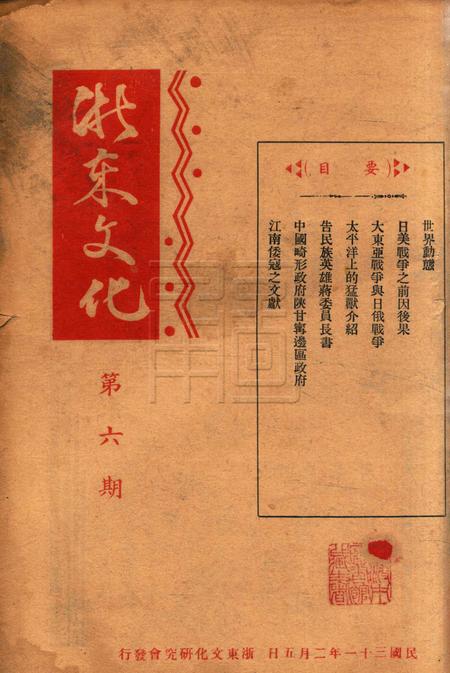 浙东文化
第六期
(要目)
世界動態
日美戰爭之前因後果
大東亞戰爭與日俄戰爭
太平洋上的猛獸介紹
告民族英雄蔣委員長書
中國畸形政府陝甘寧邊區政府
江南倭寇之文獻
民國三十一年二月五日 浙東文化研究會發行